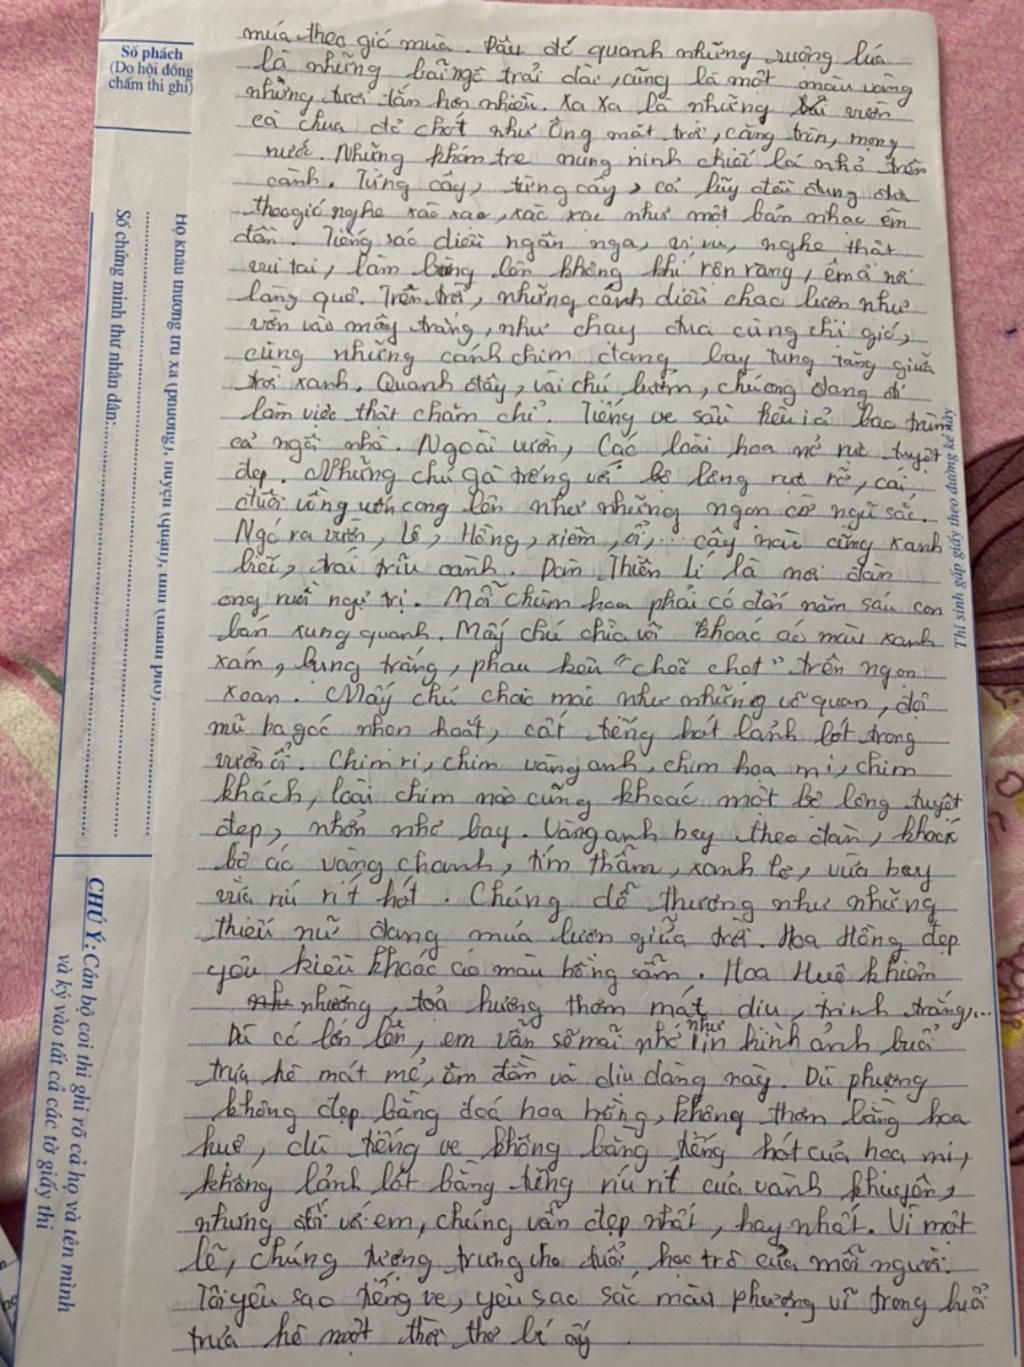 Số phách
(Do hội đồng
chấm thi ghi)
Số chứng minh thư nhân dân:
CHÚ Ý: Cán bộ coi thi ghi rõ cả họ và tên mình
và ký vào tất cả các tờ giấy thi
Thí sinh gấp giấy theo đường kẻ này
múa theo gió mùa. Đâu đó quanh những ruộng lúa
là những bãi ngô trải dài, cũng là một màu vàng
nhưng tươi tắn hơn nhiều. Xa xa là những vườn
cà chua đỏ chót như ông mặt trời, căng tròn, mọng
nước. Những khóm tre núng nính chiếc lá nhỏ trên
cành. Từng cây, từng cây, cả lũy đều đung đưa
theo gió nghe xào xạc, xào xạc như một bản nhạc êm
đềm. Tiếng sáo diều ngân nga, vi vu, nghe thật
vui tai, làm bừng lên không khí rộn ràng, êm ả nơi
làng quê. Trên trời, những cánh diều chao lượn như
vờn vào mây trắng, như chạy đua cùng chị gió,
cùng những cánh chim đang bay tung tăng giữa
trời xanh. Quanh đây, vài chú bướm, chú ong đang đi
làm việc thật chăm chỉ. Tiếng ve sầu kêu bao trùm
cả ngôi nhà. Ngoài vườn, các loài hoa nở rực tuyệt
đẹp. Những chú gà trống với bộ lông rực rỡ, cái
đuôi vồng uốn cong lên như những ngọn cờ ngũ sắc.
Ngó ra vườn, lê, hồng, xiêm, ổi,... cây nào cũng xanh
biếc, trái trĩu cành. Dàn Thiên lí là nơi đàn
ong ruồi ngự trị. Mỗi chùm hoa phải có đến năm sáu con
bám xung quanh. Mấy chú chìa vôi khoác áo màu xanh
xám, bụng trắng, phau kêu "choé choẹt" trên ngọn
xoan. Mấy chú chào mào như những võ quan, đội
mũ ba góc nhọn hoắt, cất tiếng hót lảnh lót trong
vườn ổi. Chim ri, chim vàng anh, chim hoạ mi, chim
khách, loài chim nào cũng khoác một bộ lông tuyệt
đẹp, nhởn nhơ bay. Vàng anh bay theo đàn, khoác
bộ áo vàng chanh, tím thẫm, xanh lơ, vừa bay
vừa ríu rít hót. Chúng dễ thương như những
thiếu nữ đang múa lượn giữa trời. Hoa Hồng đẹp
yêu kiều khoác áo màu hồng sẫm. Hoa Huệ khiêm
nhường, toả hương thơm mát dịu, trinh trắng,...
Dù có lớn lên, em vẫn sẽ mãi nhớ như in hình ảnh buổi
trưa hè mát mẻ, êm đềm và dịu dàng này. Dù phượng
không đẹp bằng đoá hoa hồng, không thơm bằng hoa
huệ, dù tiếng ve không bằng tiếng hót của hoạ mi,
không lảnh lót bằng tiếng ríu rít của vành khuyên,
nhưng đối với em, chúng vẫn đẹp nhất, hay nhất. Vì một
lẽ, chúng tượng trưng cho tuổi học trò của mỗi người.
Tôi yêu sao tiếng ve, yêu sao sắc màu phượng vĩ trong buổi
trưa hè một thời thơ bé ấy.